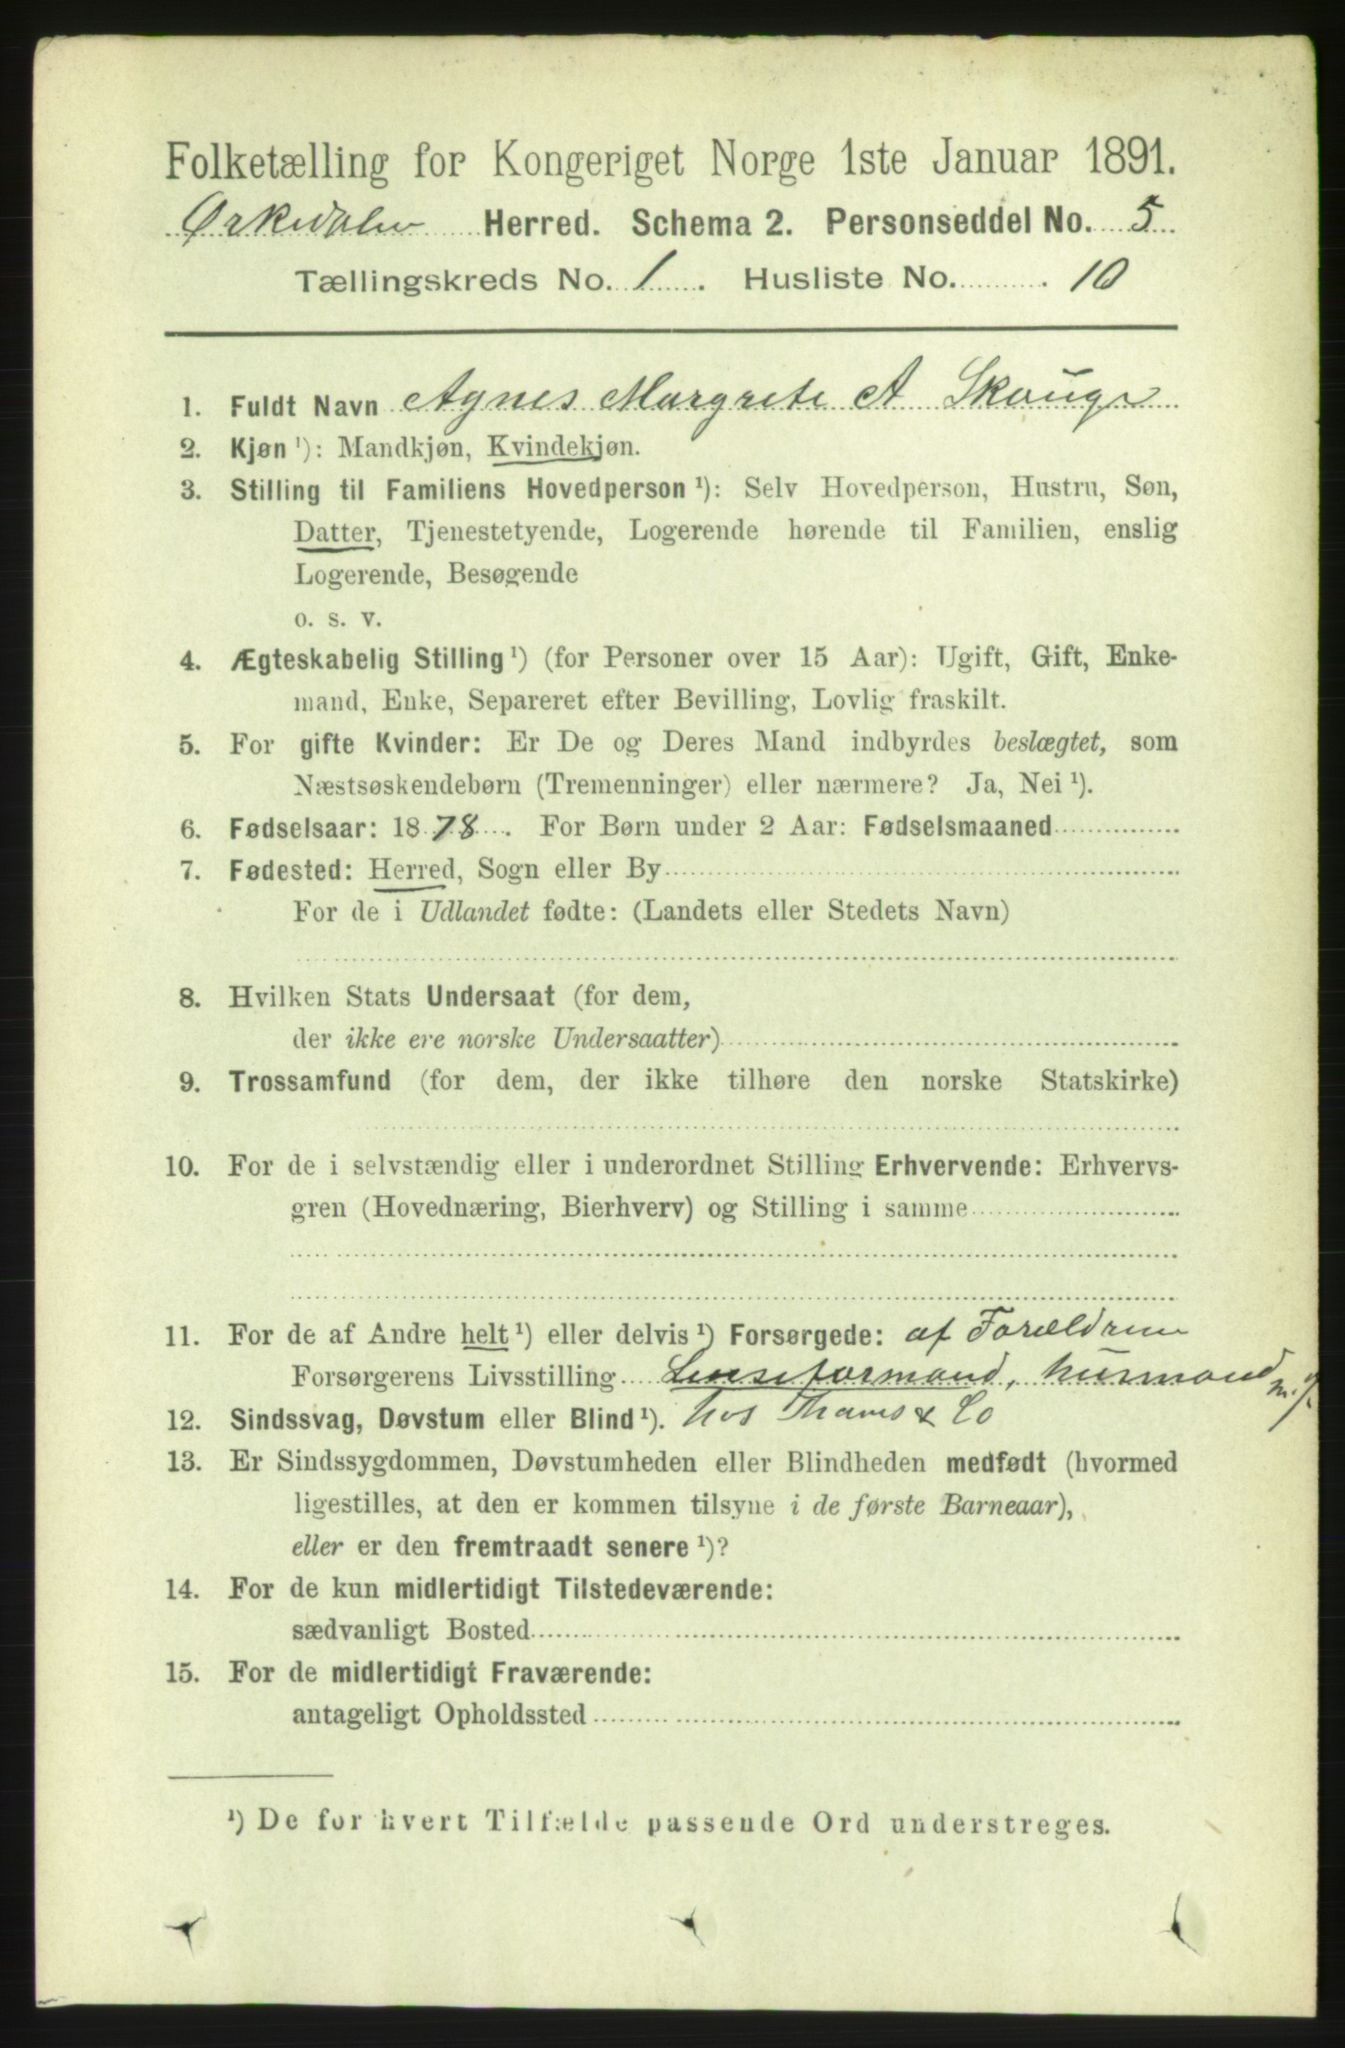 Folketælling for Kongeriget Norge 1ste Januar 1891.
Ørkedalen Herred. Schema 2. Personseddel No. 5
Tællingskreds No. 1. Husliste No. 10
1. Fuldt Navn Agnes Margrete A Skauge
2. Kjøn ¹): Mandkjøn, Kvindekjøn.
3. Stilling til Familiens Hovedperson ¹): Selv Hovedperson, Hustru, Søn,
Datter, Tjenestetyende, Logerende hørende til Familien, enslig
Logerende, Besøgende
o. s. v.
4. Ægteskabelig Stilling ¹) (for Personer over 15 Aar): Ugift, Gift, Enke-
mand, Enke, Separeret efter Bevilling, Lovlig fraskilt.
5. For gifte Kvinder: Er De og Deres Mand indbyrdes beslægtet, som
Næstsøskendebørn (Tremenninger) eller nærmere? Ja, Nei ¹).
6. Fødselsaar: 1878. For Børn under 2 Aar: Fødselsmaaned
7. Fødested: Herred, Sogn eller By
For de i Udlandet fødte: (Landets eller Stedets Navn)
8. Hvilken Stats Undersaat (for dem,
der ikke ere norske Undersaatter)
9. Trossamfund (for dem, der ikke tilhøre den norske Statskirke)
10. For de i selvstændig eller i underordnet Stilling Erhvervende: Erhvervs-
gren (Hovednæring, Bierhverv) og Stilling i samme
11. For de af Andre helt ¹) eller delvis ¹) Forsørgede: af Forældrene
Forsørgerens Livsstilling Lenseformand, husmand m. j.
12. Sindssvag, Døvstum eller Blind ¹). hos Thams & Co
13. Er Sindssygdommen, Døvstumheden eller Blindheden medfødt (hvormed
ligestilles, at den er kommen tilsyne i de første Barneaar),
eller er den fremtraadt senere ¹)?
14. For de kun midlertidigt Tilstedeværende:
sædvanligt Bosted
15. For de midlertidigt Fraværende:
antageligt Opholdssted
¹) De for hvert Tilfælde passende Ord understreges.